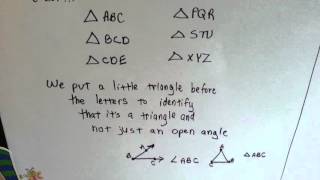 △ ABC △ PQR
△ BCD △ STU
△ CDE △ XYZ
We put a little triangle before
the letters to identify
that it's a triangle and
not just an open angle
A B C ∠ABC A B C △ABC